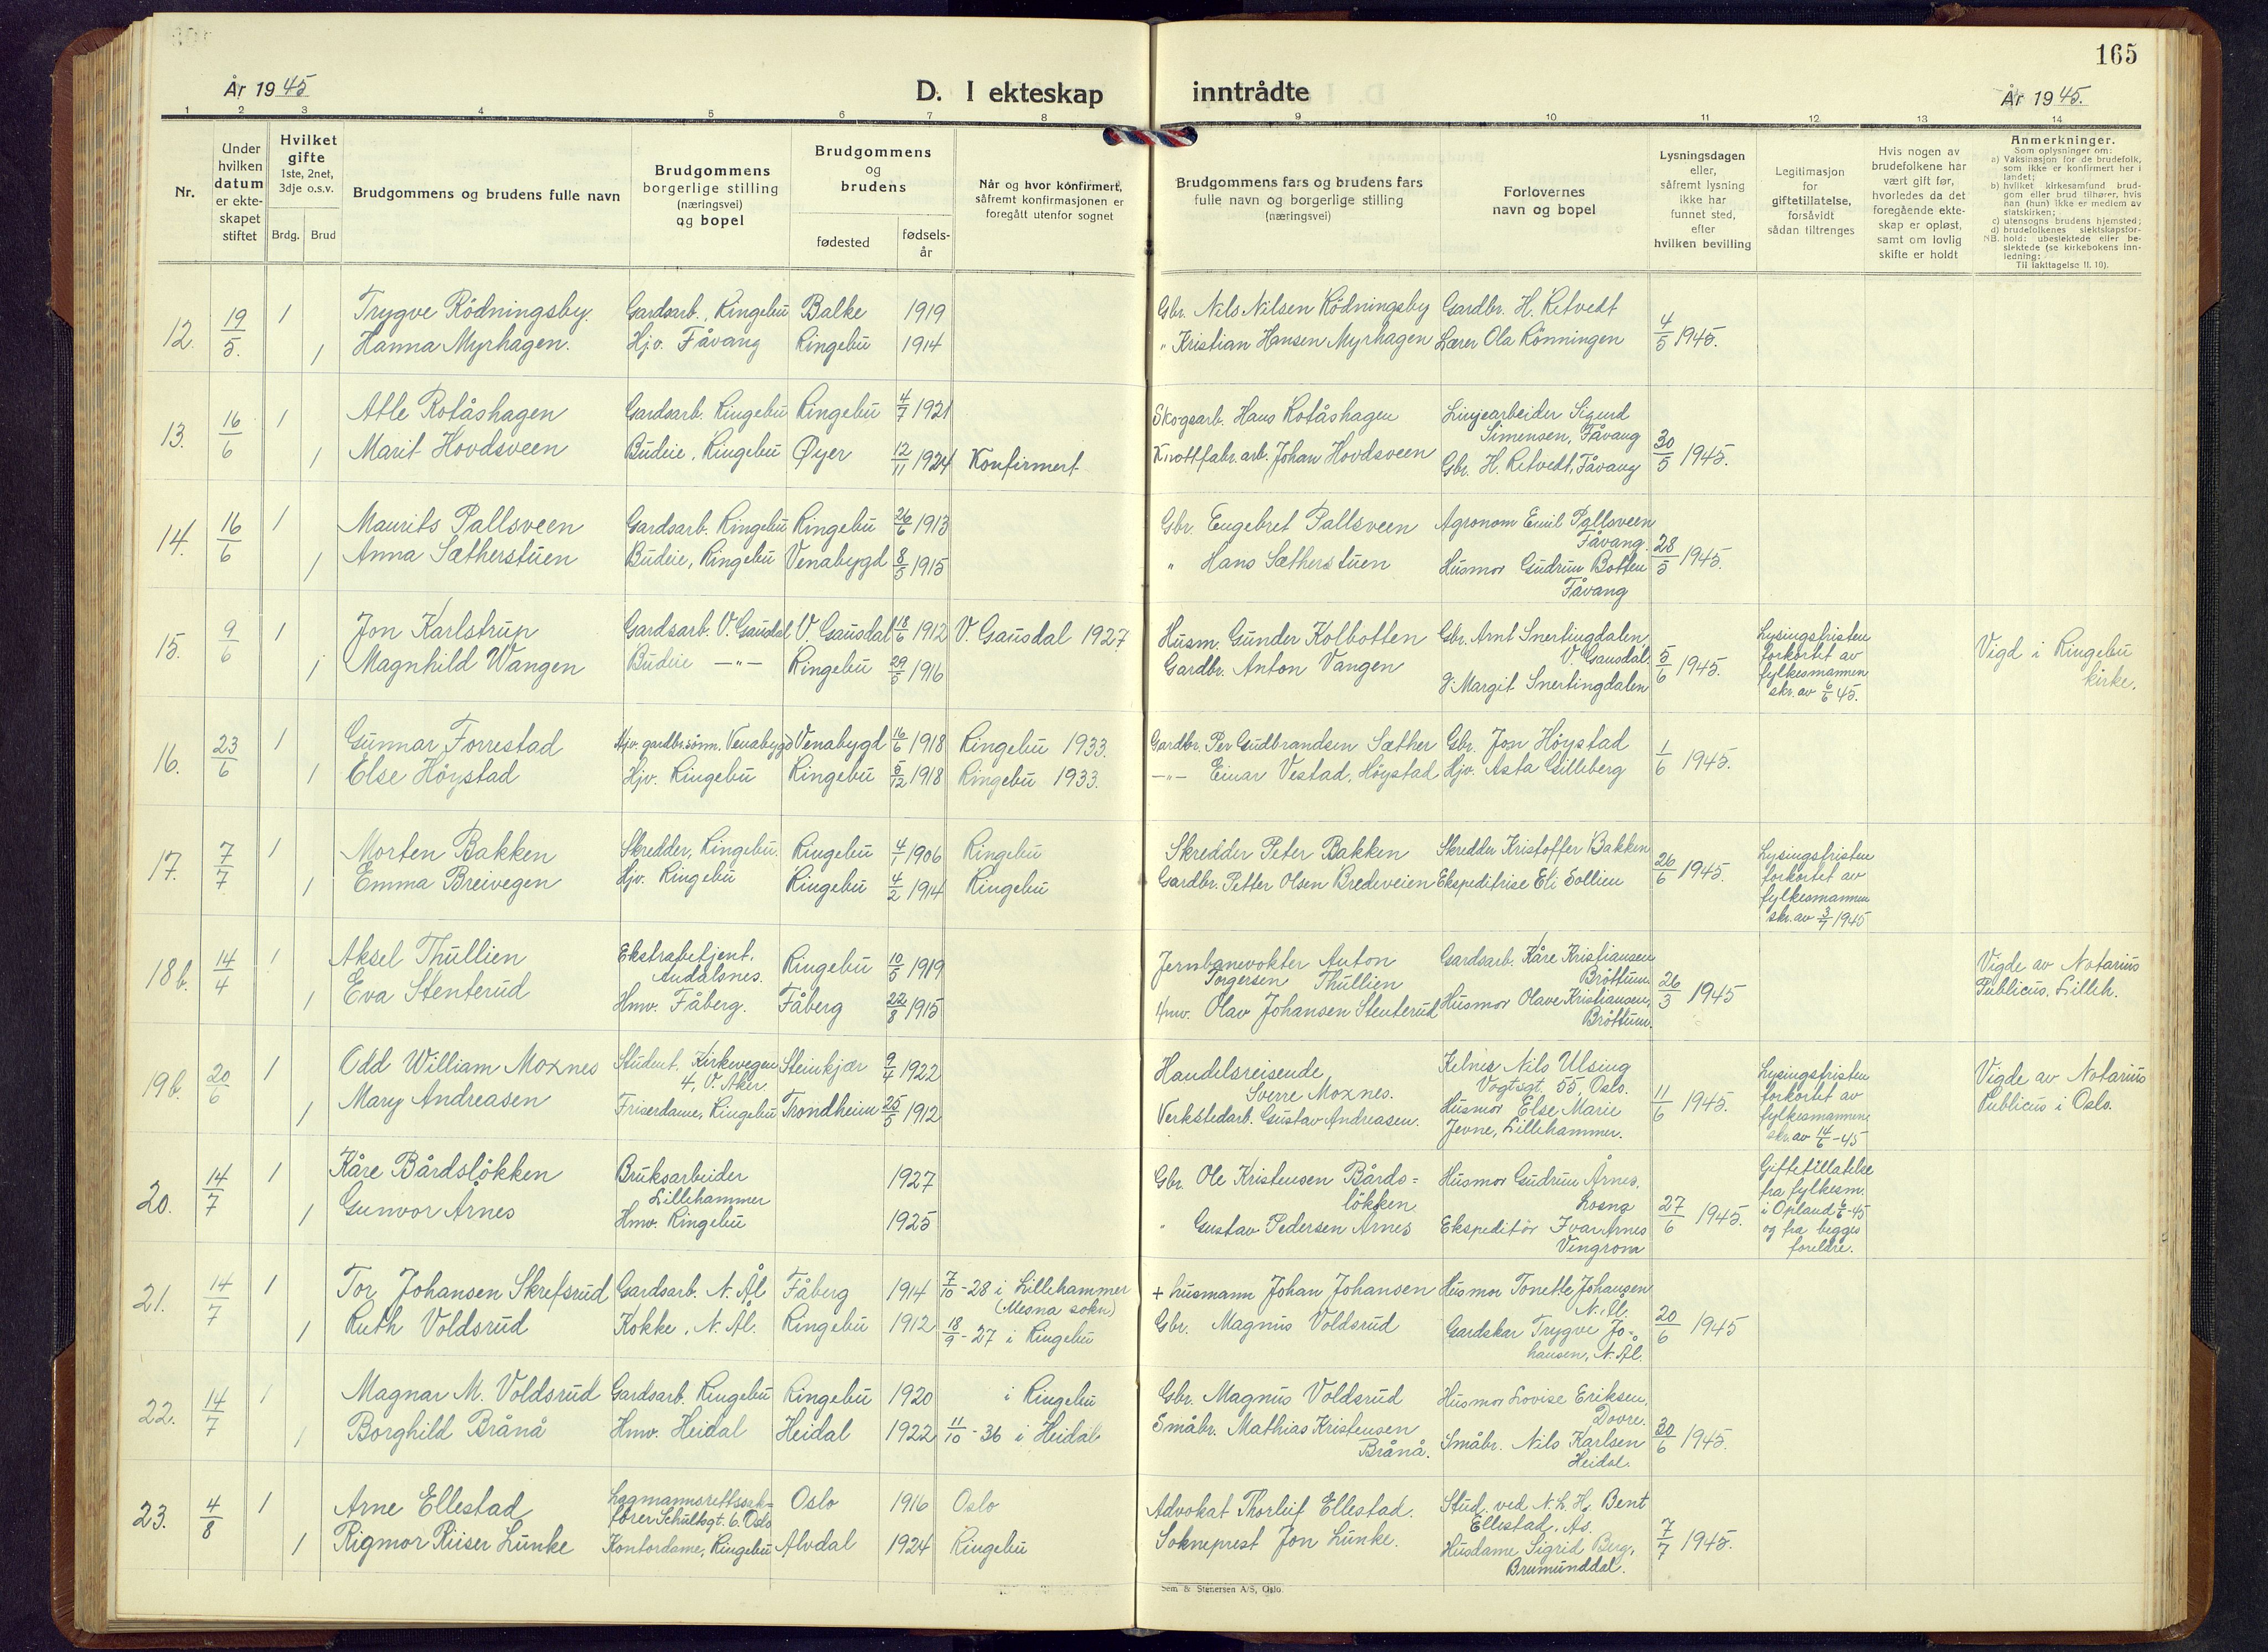 165
År 1945
D. I ekteskap inntrådte
År 1945.
1 2 3 4 5 6 7 8 9 10 11 12 13 14
Nr.
Under
hvilken
datum
er ekte-
skapet
stiftet
Hvilket
gifte
1ste, 2net,
3dje o.s.v.
Brdg. Brud
Brudgommens og brudens fulle navn
Brudgommens
borgerlige stilling
(næringsvei)
og bopel
Brudgommens
og
brudens
fødested
fødsels-
år
Når og hvor konfirmert,
såfremt konfirmasjonen er
foregått utenfor sognet
Brudgommens fars og brudens fars
fulle navn og borgerlige stilling
(næringsvei)
Forlovernes
navn og bopel
Lysningsdagen
eller,
såfremt lysning
ikke har
funnet sted,
efter
hvilken bevilling
Legitimasjon
for
giftetillatelse,
forsåvidt
sådan tiltrenges
Hvis nogen av
brudefolkene har
vært gift før,
hvorledes da det
foregående ekte-
skap er opløst,
samt om lovlig
skifte er holdt
Anmerkninger.
Som oplysninger om:
a) Vaksinasjon for de brudefolk,
som ikke er konfirmert her i
landet;
b) hvilket kirkesamfund brud-
gom eller brud tilhører, hvis
han (hun) ikke er medlem av
statskirken;
c) utensogns brudens hjemsted;
d) brudefolkenes slektskapsfor-
hold: ubeslektede eller be-
slektede (se kirkebokens inn-
ledning:
NB.
Til iakttagelse II. 10).
12. 19/5. 1 Trygve Rödningsby. Gardsarb., Ringebu Balke 1919 Gbr. Nils Nilsen Rödningsby Gardbr. H. Ritvedt
1 Hanna Myrhagen. Hjv. Fåvang Ringebu 1914 " Kristian Hansen Myrhagen Lærer Ola Rönningen 4/5 1945.
13. 16/6 1 Atle Rolåshagen Gardsarb. Ringebu Ringebu 4/7 1921 Skogsarb. Hans Rolåshagen Linjearbeider Sigurd
Simensen, Fåvang
1 Marit Hovdsveen Budeie, Ringebu Øyer 12/11 1924 Konfirmert Knottfabr. arb. Johan Hovdsveen Gbr. H. Ritvedt, Fåvang 30/5 1945.
14. 16/6 1 Maurits Pallsveen Gardsarb. Ringebu Ringebu 26/6 1913 Gbr. Engebret Pallsveen Agronom Emil Pallsveen
Fåvang.
1 Anna Sætherstuen Budeie, Ringebu Venabygd 8/5 1915 " Hans Sætherstuen Husmor Gudrun Botten 28/5 1945.
Fåvang
15. 9/6 1 Jon Karlstrup Gardsarb. V. Gausdal V. Gausdal 18/6 1912 V. Gausdal 1927 Husm. Gunder Kolbotten Gbr. Arnt Snertingdalen Lysingsfristen
V. Gausdal. forkortet av Vigd i Ringebu
1 Magnhild Wangen Budeie —"— Ringebu 29/5 1916 Gardbr. Anton Vangen 5/6 1945. fylkesmannen kirke.
g. Margit Snertingdalen skr. av 6/6 45.
16. 23/6 1 Gunnar Forrestad Hjv. gardbr.sönn. Venabygd Venabygd 16/6 1918 Ringebu 1933. Gardbr. Per Gudbrandsen Sæther Gbr. Jon Höystad
1 Else Höystad Hjv. Ringebu Ringebu 5/12 1918 Ringebu 1933. —"— Einar Vestad, Höystad Hjv. Asta Gilleberg 1/6 1945.
17. 7/7 1 Morten Bakken Skredder, Ringebu. Ringebu 4/1 1906 Ringebu Skredder Peter Bakken Skredder Kristoffer Bakken Lysingsfristen
1 Emma Breivegen Hjv. Ringebu Ringebu 4/2 1914 Ringebu Gardbr. Petter Olsen Bredeveien Ekspeditrise Eli Sollien 26/6 1945. forkortet av
fylkesmannen
skr. av 3/7 1945
18 b. 14/4 1 Aksel Thullien Ekstrabetjent. Ringebu 10/5 1919 Jernbanevokter Anton Gardsarb. Kåre Kristiansen Vigde av Notarius
Åndalsnes. Torgersen Thullien Bröttum Publicus, Lilleh.
1 Eva Stenterud Hmv. Fåberg. Fåberg 22/8 1915 Hmv. Olav Johansen Stenterud Husmor Olave Kristiansen, 26/3 1945
Bröttum.
19 b. 20/6 1 Odd William Moxnes Student, Kirkevegen Steinkjær 9/4 1922 Handelsreisende Kelner Nils Ulsing Lysingsfristen Vigde av Notarius
4, V. Aker Sverre Moxnes. Vogtsgt. 55, Oslo. forkortet av Publicus i Oslo.
1 Mary Andreasen Friserdame, Ringebu Trondheim 25/5 1912 Verkstedarb. Gustav Andreasen. Husmor Else Marie 11/6 1945. fylkesmannen
Jevne, Lillehammer. skr. av 14/6 -45
20. 14/7 1 Kåre Bårdslökken Bruksarbeider 1927 Gbr. Ole Kristensen Bårds= Husmor Gudrun Årnes, Giftetillatelse
Lillehammer lökken Losna fra fylkesm.
1 Gunvor Årnes Hmv. Ringebu 1925 " Gustav Pedersen Årnes Ekspeditör Ivar Årnes 27/6 1945. i Opland 6/6-45
Vingrom og fra begges
foreldre.
21. 14/7 1 Tor Johansen Skrefsrud Gardsarb. N. Ål Fåberg 1914 7/10 -28 i Lillehammer + husmann Johan Johansen Husmor Tonette Johansen
(Mesna sokn) N. Ål.
1 Ruth Voldsrud Kokke, N. Ål. Ringebu 1912 18/9 - 27 i Ringebu Gbr. Magnus Voldsrud Gardskar Trygve Jo- 20/6 1945
hansen, N. Ål.
22. 14/7 1 Magnar M. Voldsrud Gardsarb. Ringebu Ringebu 1920 i Ringebu Gbr. Magnus Voldsrud Husmor Lovise Eriksen,
Dovre.
1 Borghild Brånå Hmv. Heidal Heidal 1922 11/10 - 36 i Heidal Småbr. Mathias Kristensen Småbr. Nils Karlsen 30/6 1945.
Brånå. Heidal.
23. 4/8 1 Arne Ellestad Lagmannsrettssak= Oslo 1916 Oslo Advokat Thorleif Ellestad. Stud. ved N. L. H. Bent
förer Schultsgt. 6. Oslo Ellestad, Ås.
1 Rigmor Riiser Lunke Kontordame, Ringebu Alvdal 1924 Ringebu Sokneprest Jon Lunke. Husdame Sigrid Berg, 7/7 1945.
Brumunddal.
Sem & Stenersen A/S, Oslo.